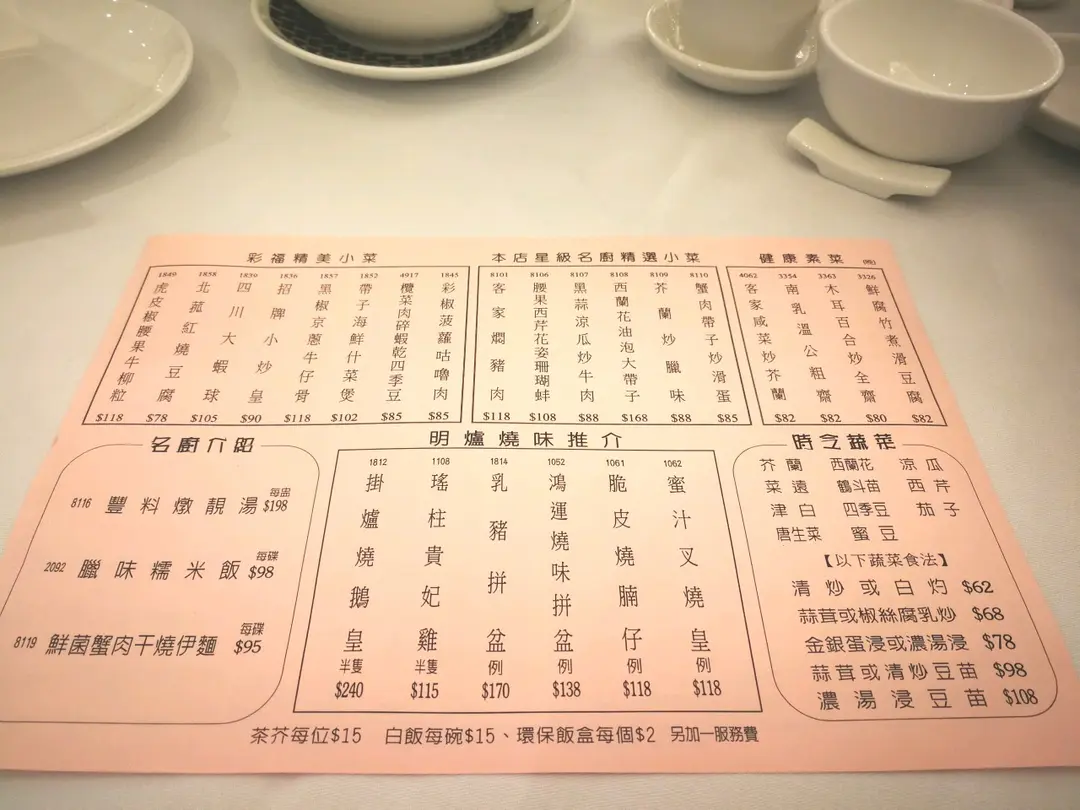 彩福精美小菜
1849 虎皮椒腰果牛柳粒 $118
1858 北菰紅燒豆腐 $78
1839 四川大蝦球 $105
1836 招牌小炒皇 $90
1857 黑椒京蔥牛仔骨 $118
1852 帶子海鮮什菜煲 $102
4917 欖菜肉碎蝦乾四季豆 $85
1845 彩椒菠蘿咕嚕肉 $85
本店星級名廚精選小菜
8101 客家燜豬肉 $118
8106 腰果西芹花姿珊瑚蚌 $108
8107 黑蒜涼瓜炒牛肉 $88
8108 西蘭花油泡大帶子 $168
8109 芥蘭炒臘味 $88
8110 蟹肉帶子炒滑蛋 $85
健康素菜
4062 客家咸菜炒芥蘭 $82
3354 南乳溫公粗齋 $82
3363 木耳百合炒全齋 $80
3326 鮮腐竹煮滑豆腐 $82
名廚介紹
8116 豐料燉靚湯 每窩 $198
2092 臘味糯米飯 每碟 $98
8119 鮮菌蟹肉干燒伊麵 每碟 $95
明爐燒味推介
1812 掛爐燒鵝皇 半隻 $240
1108 瑤柱貴妃雞 半隻 $115
1814 乳豬拼盆 例 $170
1052 鴻運燒味拼盆 例 $138
1061 脆皮燒腩仔 例 $118
1062 蜜汁叉燒皇 例 $118
時令蔬菜
芥蘭 西蘭花 涼瓜
菜遠 鶴斗苗 西芹
津白 四季豆 茄子
唐生菜 蜜豆
【以下蔬菜食法】
清炒或白灼 $62
蒜茸或椒絲腐乳炒 $68
金銀蛋浸或濃湯浸 $78
蒜茸或清炒豆苗 $98
濃湯浸豆苗 $108
茶芥每位$15 白飯每碗$15、環保飯盒每個$2 另加一服務費